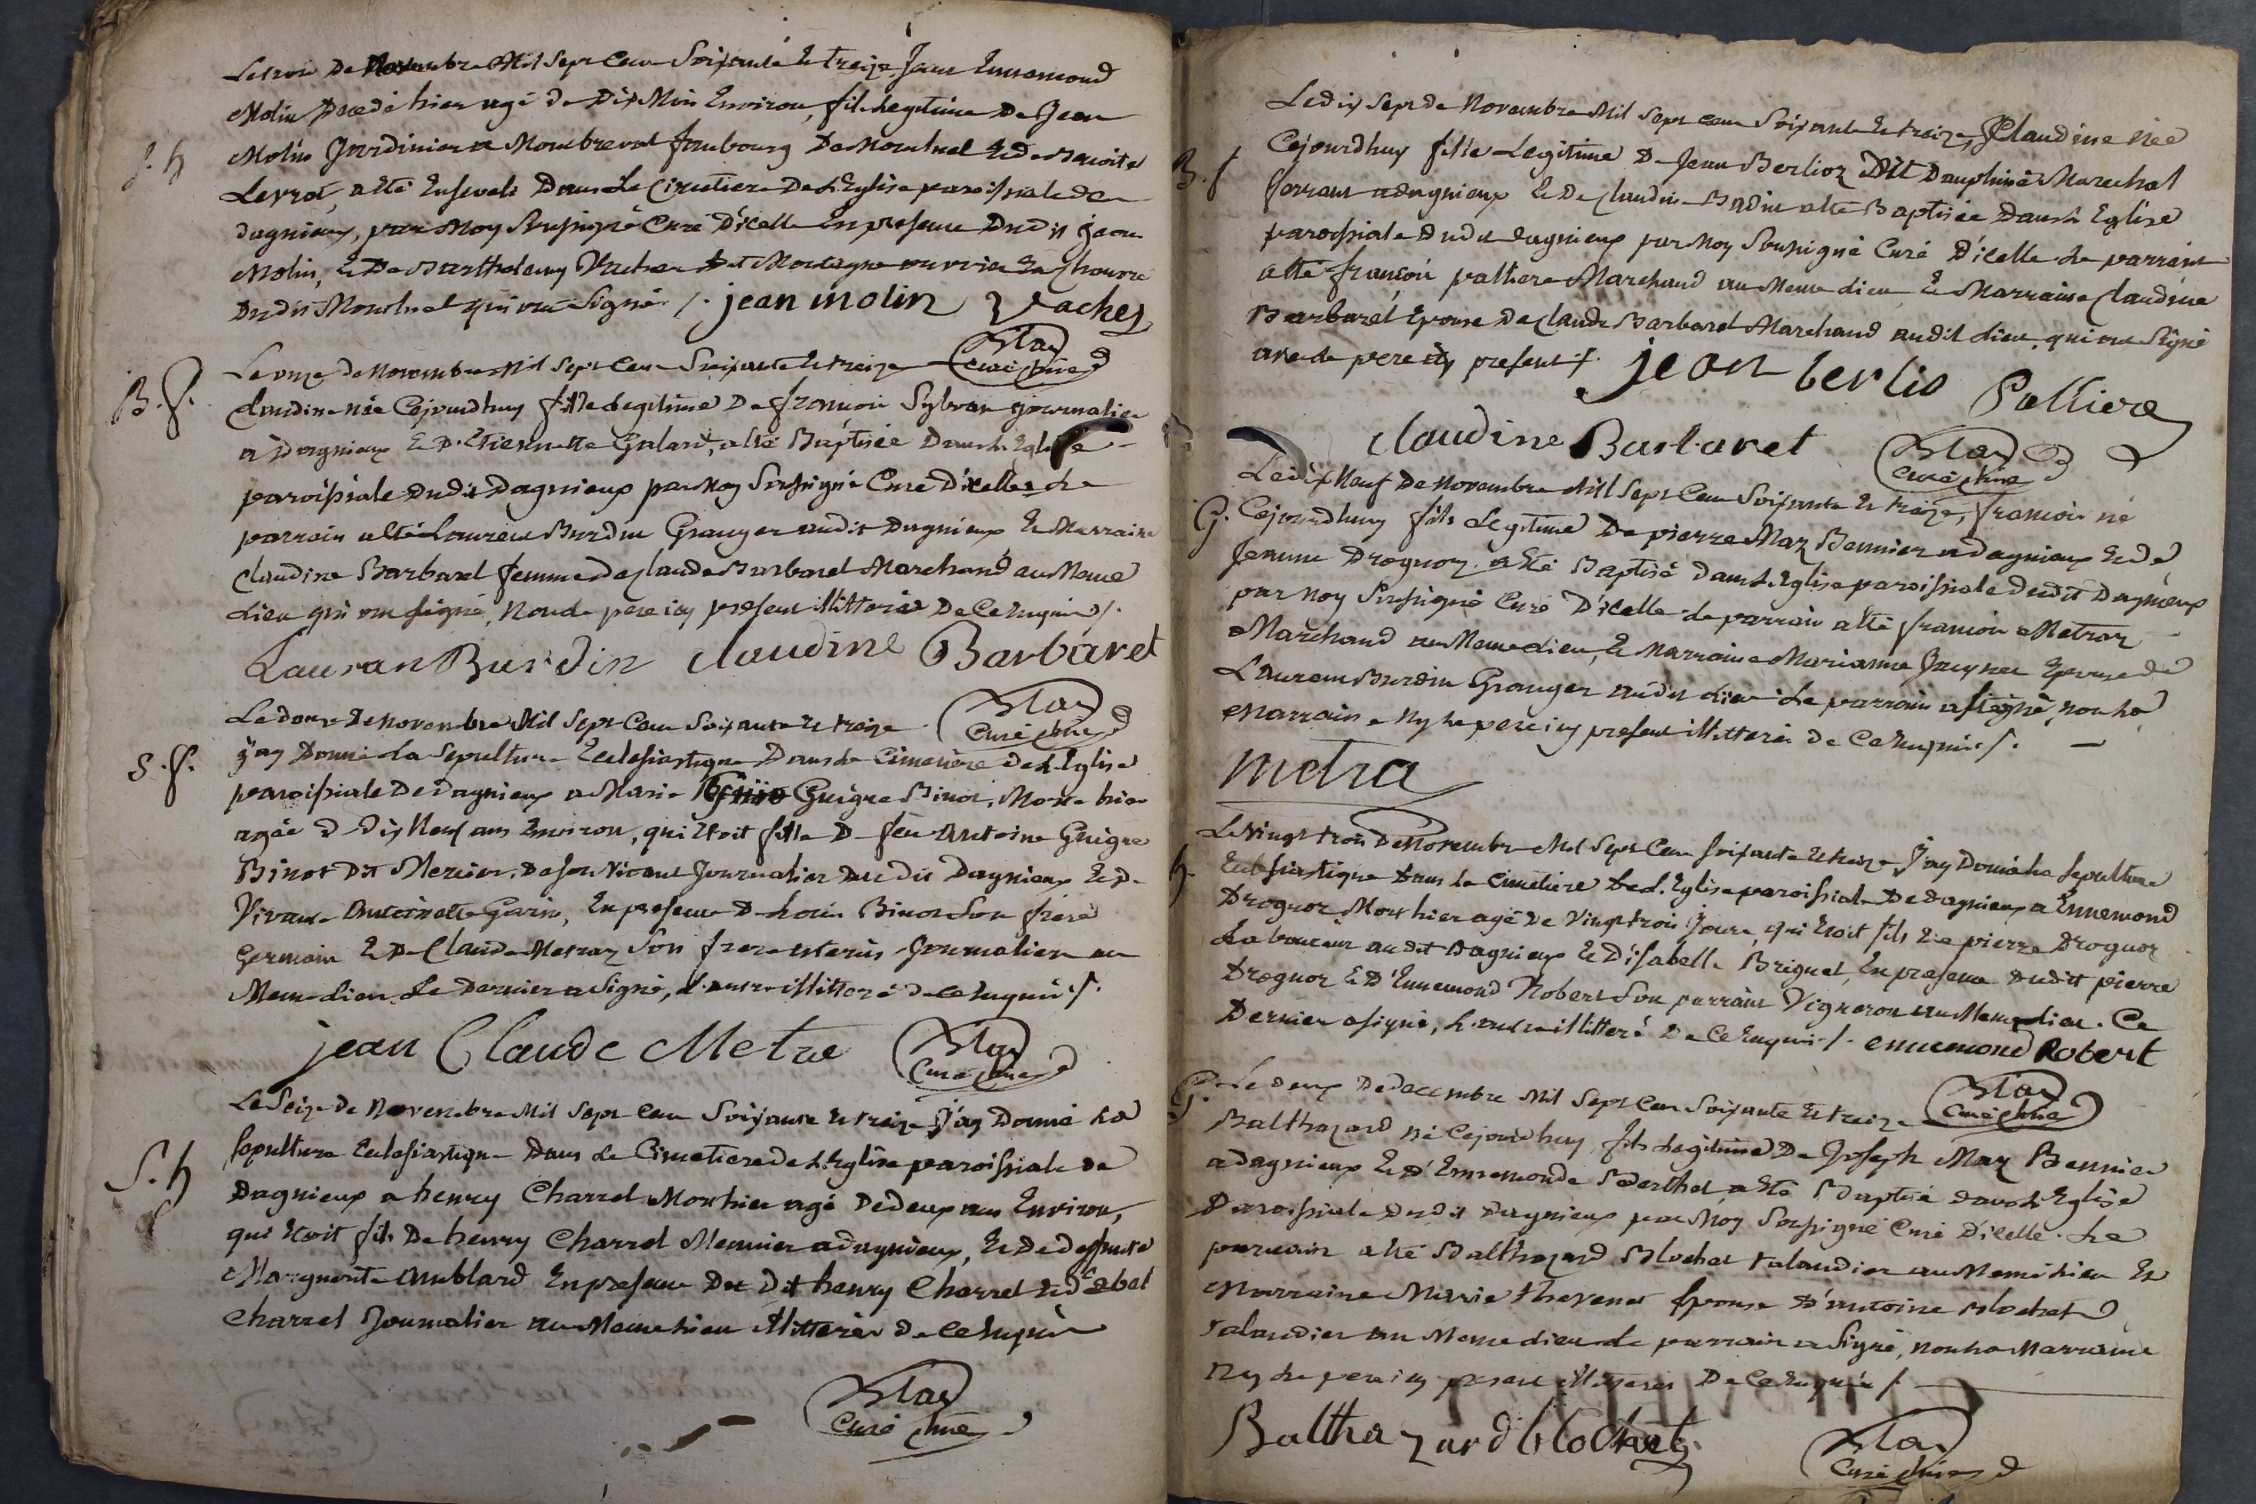 Le trois De Novembre Mil Sept Cens Soixante Et treize, Jean Ennemond
Molin Decedé hier agé de Dix Mois Environ, fils Legitime De Jean
Molin Jardinier a Montbreval faubourg De Montluel Et de Benoite
Levrat, a été Enseveli Dans Le Cimetiere De L'Eglise paroissiale de
dagnieux, par Moy Soussigné Curé D'icelle En presence Dudit jean
Molin, Et De Barthelemy Vacher Dit Montagne ouvrier En Chanvre
Dudit Montluel qui ont Signé /. jean molin Vacher
S. h
Curé
Le onze de novembre Mil Sept Cens Soixante Et treize
B. f.
Claudine née Cejourdhuy fille Legitime De francois Sylvan journalier
a Dagnieux Et D'Etiennette Galand, a été Baptisée Dans L'Eglise
paroissiale Dudit Dagnieux par Moy Soussigné Curé D'icelle. Le
parrain a été Laurent Burdin Granger audit Dagnieux Et Marraine
Claudine Barbaret femme de Claude Barbaret Marchand au Meme
Lieu qui ont signé, Non Le pere icy present illitteré De Ce Enquis /.
Lauran Burdin Claudine Barbaret
Curé
Le douze De novembre Mil Sept Cens Soixante Et treize
S. f.
j'ay Donné La Sepulture Eclesiastique Dans Le Cimetiere de L'Eglise
paroissiale De dagnieux a Marie Guigue Binot, Morte hier
agée De Dix Neuf ans Environ, qui Etoit fille De feu Antoine Guigue
Binot Dit Mercier, De son Vivant Journalier Audit Dagnieux Et De
Vivante Antoinette Garin, En presence De Louis Binot Son frere
Germain Et De Claude Metraz Son frere uterin Journalier au
Meme Lieu, Le Dernier a Signé, L'autre illitteré de ce Enquis /.
jean Claude Metra
Curé
Le Seize de Novembre Mil Sept Cens Soixante Et treize J'ay Donné La
S. h
Sepulture Eclesiastique Dans Le Cimetiere de L'Eglise paroissiale de
Dagnieux a henry Charrel Mort hier agé De deux ans Environ,
qui Etoit fils De henry Charrel Meunier a Dagnieux, Et De deffunte
Marguerite Amblard En presence Du Dit henry Charrel Et d'abel
Charrel Journalier au Meme Lieu illitterés de Ce Enquis
Curé
Le dix Sept de Novembre Mil Sept cens Soixante Et treize, Claudine née
B. f
Cejourdhuy fille Legitime De Jean Berlioz Dit Dauphiné Marechal
ferrant a dagnieux Et De Claudine Badin a été Baptisée Dans L'Eglise
paroissiale Dudit dagnieux par Moy Soussigné Curé D'icelle Le parrain
a été francois palliere Marchand au Meme Lieu Et Marraine Claudine
Barbaret Epouse De Claude Barbaret Marchand audit Lieu, qui ont Signé
avec Le pere icy present /. jean berlio Palliere
Claudine Barbaret
Curé
Le dix Neuf De Novembre Mill Sept Cens Soixante Et treize, francois né
G.
Cejourdhuy fils Legitime De pierre Maz Bennier a dagnieux Et de
Jeanne Drognoz a été Baptisé Dans L'Eglise paroissiale Dudit Dagnieux
par Moy Soussigné Curé D'icelle Le parrain a été francois Metraz
Marchand au Meme Lieu, Et Marraine Marianne Epouse de
Laurent Burdin Granger audit Lieu Le parrain a signé, non La
Marraine Ny Le pere icy present illitterés de Ce Enquis /.
metra
Le Vingt trois De Novembre Mil Sept Cens Soixante Et treize J'ay Donné La Sepulture
h.
Eclesiastique Dans Le Cimetiere De L'Eglise paroissiale De Dagnieux a Ennemond
Drognoz Mort hier agé de Vingt trois Jours, qui Etoit fils De pierre Drognoz
Laboureur audit Dagnieux Et D'isabelle Briguet, En presence Dudit pierre
Drognoz Et D'Ennemond Robert Son parrain Vigneron au Meme Lieu. Ce
Dernier a signé, L'autre illitteré De Ce Enquis /. ennemond Robert
Curé
G.
Le deux De decembre Mil Sept Cens Soixante Et treize
Balthazard né Cejourdhuy fils Legitime De Joseph Maz Bennier
a dagnieux Et d'Ennemonde Berthet a été Baptisé dans L'Eglise
Paroissiale Dudit Dagnieux par Moy Soussigné Curé D'icelle. Le
parrain a été Balthazard Blochet Talandier au Meme Lieu Et
Marraine Marie thevenet Epouse D'antoine Blochet
Talandier au Meme Lieu Le parrain a Signé, non La Marraine
Ny Le pere icy present illitterés De Ce Enquis /.
Balthazard blochet
Curé